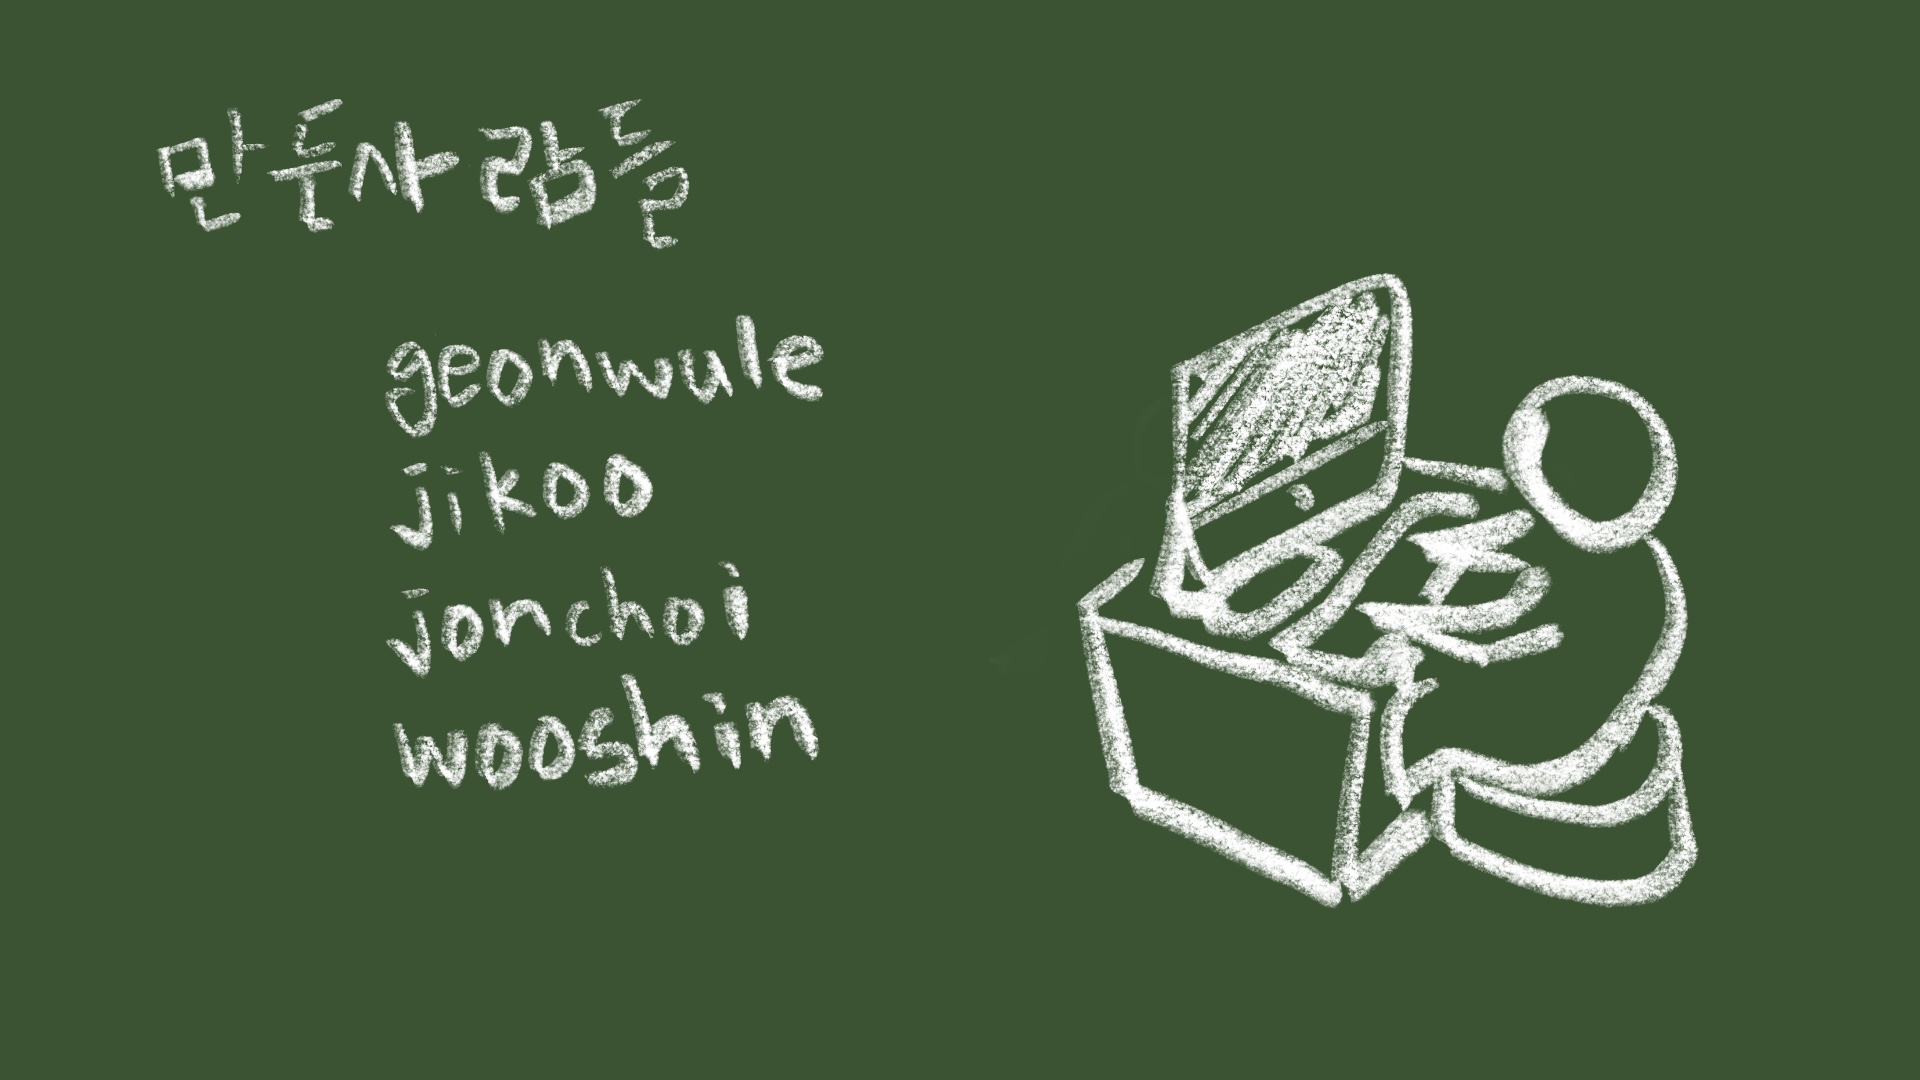 만든사람들
geonwule
jikoo
jonchoi
wooshin